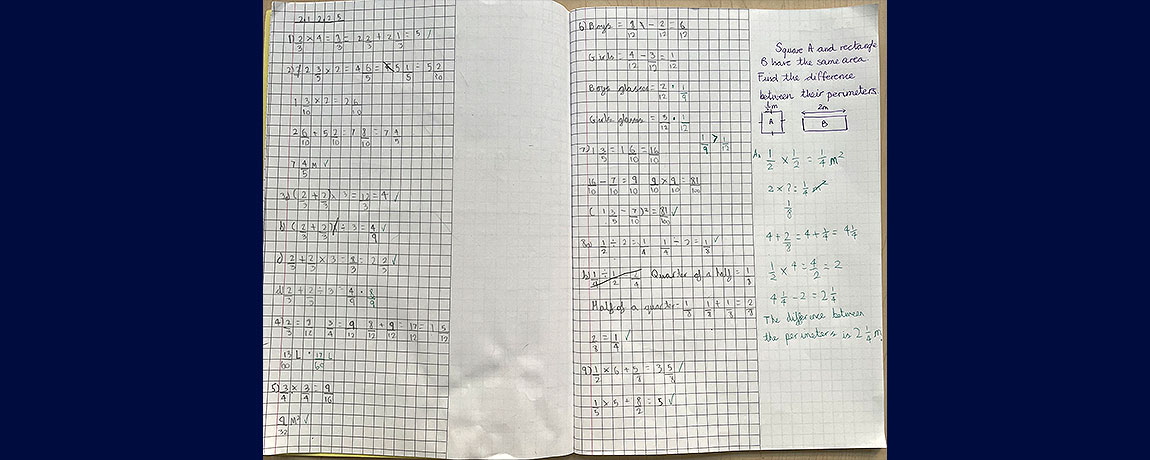 2.1 2.2 5
1) 2/3 × 4 = 8/3 = 2 2/3 + 2 1/3 = 5 /
2 3/5 × 2 = 4 6/5 = 5 1/5 = 5 2/10
1 3/10 × 2 = 2 6/10
2 6/10 + 5 2/10 = 7 8/10 = 7 4/5
7 4/5 m ✓
3a) (2/3 + 2/3) × 3 = 12/3 = 4 ✓
b) (2/3 + 2/3) ÷ 3 = 4/9 ✓
c) 2/3 + 2/3 × 3 = 8/3 = 2 2/3 ✓
d) 2/3 + 2/3 ÷ 3 = 4/9 · 8/9
4) 2/3 = 8/12 3/4 = 9/12 8/12 + 9/12 = 17/12 = 1 5/12
5) 3/4 × 3/4 = 9/16
9/32 m² ✓
6) Boys = 8/12 - 2/12 = 6/12
Girls = 4/12 - 3/12 = 1/12
Boys glasses = 2/12 · 1/9
Girls glasses = 3/12 · 1/12
1/9 > 1/12
7) 1 3/5 = 1 6/10 = 16/10
16/10 - 7/10 = 9/10 9/10 × 9/10 = 81/100
(1 3/5 - 7/10)² = 81/100 ✓
8a) 1/2 ÷ 2 = 1/4 1/4 ÷ 2 = 1/8 ✓
b) Quarter of a half = 1/8
Half of a quarter = 1/8 1/8 + 1/8 = 2/8
2/8 = 1/4 ✓
9) 1/2 × 6 + 5/8 = 3 5/8 /
Square A and rectangle
B have the same area.
Find the difference
between their perimeters.
½m 2m
A B
A: 1/2 × 1/2 = 1/4 m²
2 × ? = 1/4 m²
1/8
4 + 2/8 = 4 + 1/4 = 4 1/4
1/2 × 4 = 4/2 = 2
4 1/4 - 2 = 2 1/4
The difference between
the perimeters is 2 1/4 m.